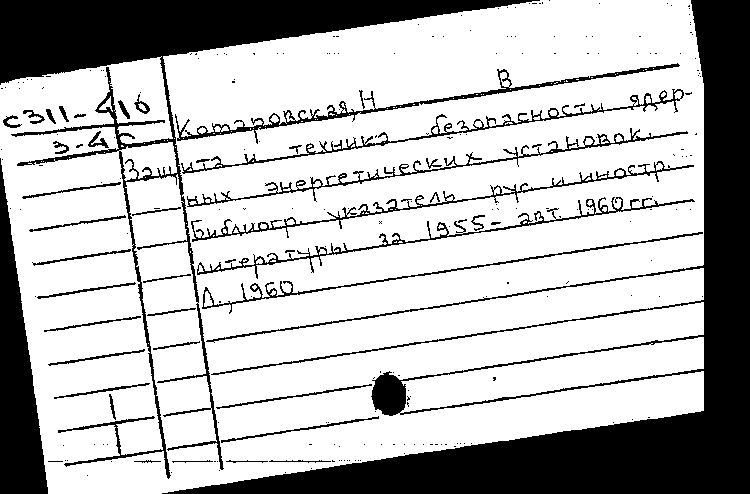 С311-416
3-4С
Котаровская, Н В
Защита и техника безопасности ядер-
ных энергетических установок.
Библиогр. указатель рус. и иностр.
литературы за 1955 - авт. 1960 гг.
Л., 1960